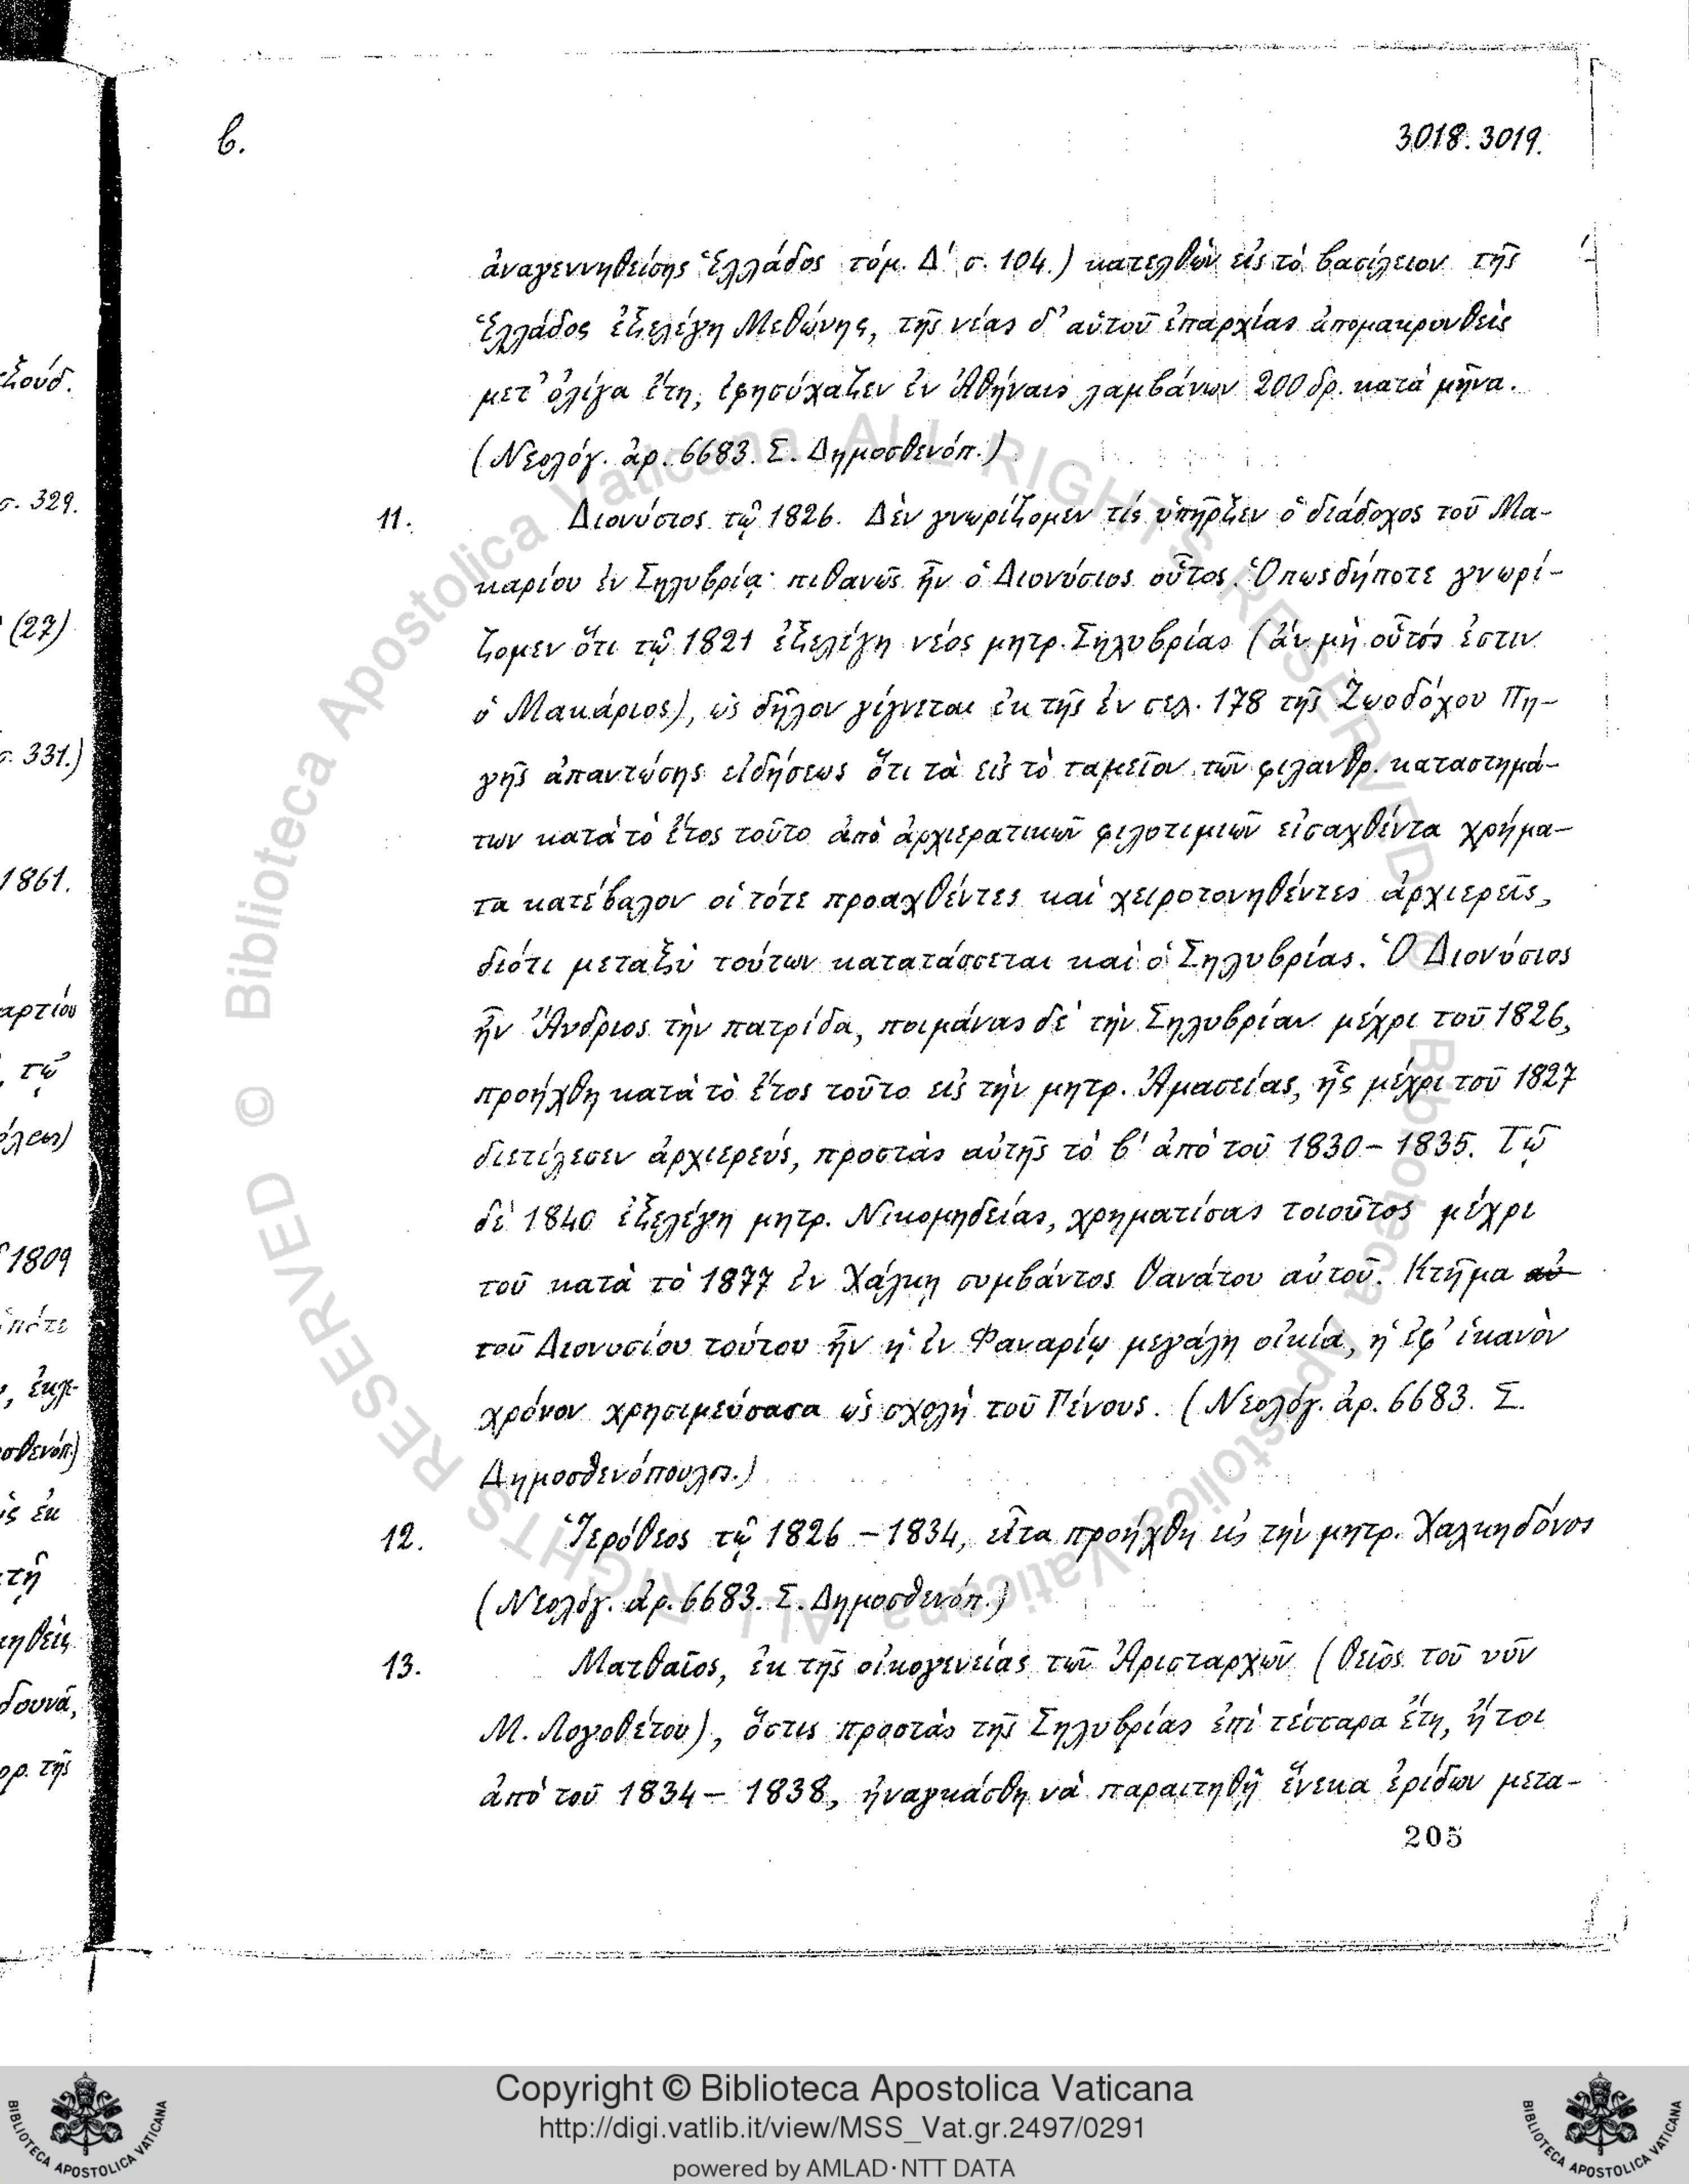 6.
3018.3019.
ἀναγεννηθείσης Ἑλλάδος τόμ. Δ' σ. 104.) κατελθὼν εἰς τὸ βασίλειον τῆς
Ἑλλάδος ἐξελέγη Μεθώνης, τῆς νέας δ' αὑτοῦ ἐπαρχίας ἀπομακρυνθεὶς
μετ' ὀλίγα ἔτη, ἐφησύχαζεν ἐν Ἀθήναις λαμβάνων 200 δρ. κατὰ μῆνα.
(Νεολόγ. ἀρ. 6683. Σ. Δημοσθενόπ.)
11. Διονύσιος τῷ 1826. Δὲν γνωρίζομεν τίς ὑπῆρξεν ὁ διάδοχος τοῦ Μα-
καρίου ἐν Σηλυβρίᾳ· πιθανῶς ἦν ὁ Διονύσιος οὗτος. Ὁπωςδήποτε γνωρί-
ζομεν ὅτι τῷ 1821 ἐξελέγη νέος μητρ. Σηλυβρίας (ἂν μὴ οὗτός ἐστιν
ὁ Μακάριος), ὡς δῆλον γίγνεται ἐκ τῆς ἐν σελ. 178 τῆς Ζωοδόχου Πη-
γῆς ἀπαντώσης εἰδήσεως ὅτι τὰ εἰς τὸ ταμεῖον τῶν φιλανθρ. καταστημά-
των κατὰ τὸ ἔτος τοῦτο ἀπὸ ἀρχιερατικῶν φιλοτιμιῶν εἰσαχθέντα χρήμα-
τα κατέβαλον οἱ τότε προαχθέντες καὶ χειροτονηθέντες ἀρχιερεῖς,
διότι μεταξὺ τούτων κατατάσσεται καὶ ὁ Σηλυβρίας. Ὁ Διονύσιος
ἦν Ἄνδριος τὴν πατρίδα, ποιμάνας δὲ τὴν Σηλυβρίαν μέχρι τοῦ 1826,
προήχθη κατὰ τὸ ἔτος τοῦτο εἰς τὴν μητρ. Ἀμασείας, ἧς μέχρι τοῦ 1827
διετέλεσεν ἀρχιερεύς, προστὰς αὐτῆς τὸ β' ἀπὸ τοῦ 1830 – 1835. Τῷ
δὲ 1840 ἐξελέγη μητρ. Νικομηδείας, χρηματίσας τοιοῦτος μέχρι
τοῦ κατὰ τὸ 1877 ἐν Χάλκῃ συμβάντος θανάτου αὐτοῦ. Κτῆμα αὐ
τοῦ Διονυσίου τούτου ἦν ἡ ἐν Φαναρίῳ μεγάλη οἰκία, ἡ ἐφ' ἱκανὸν
χρόνον χρησιμεύσασα ὡς σχολὴ τοῦ Γένους. (Νεολόγ. ἀρ. 6683. Σ.
Δημοσθενόπουλος.)
12. Ἱερόθεος τῷ 1826 – 1834, εἶτα προήχθη εἰς τὴν μητρ. Χαλκηδόνος
(Νεολόγ. ἀρ. 6683. Σ. Δημοσθενόπ.)
13. Ματθαῖος, ἐκ τῆς οἰκογενείας τῶν Ἀρισταρχῶν (θεῖος τοῦ νῦν
Μ. Λογοθέτου), ὅστις προστὰς τῆς Σηλυβρίας ἐπὶ τέσσαρα ἔτη, ἤτοι
ἀπὸ τοῦ 1834 – 1838, ἠναγκάσθη νὰ παραιτηθῇ ἕνεκα ἐρίδων μετα-
205
Copyright © Biblioteca Apostolica Vaticana
http://digi.vatlib.it/view/MSS_Vat.gr.2497/0291
powered by AMLAD·NTT DATA